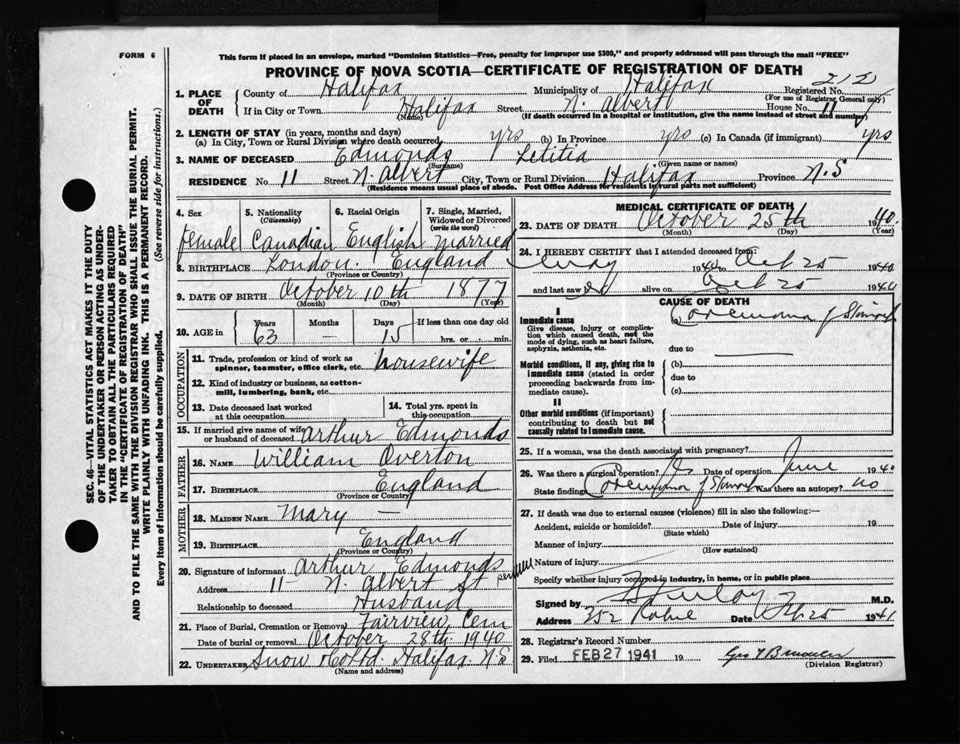 FORM 6
This form if placed in an envelope, marked "Dominion Statistics—Free, penalty for improper use $300," and properly addressed will pass through the mail "FREE"
PROVINCE OF NOVA SCOTIA—CERTIFICATE OF REGISTRATION OF DEATH
1. PLACE OF DEATH
County of Halifax Municipality of Halifax Registered No. 212
(For use of Registrar General only)
If in City or Town Halifax Street N. Albert House No. 11
(Name) (If death occurred in a hospital or institution, give the name instead of street and number)
2. LENGTH OF STAY (in years, months and days)
(a) In City, Town or Rural Division where death occurred yrs (b) In Province yrs (c) In Canada (if immigrant) yrs
3. NAME OF DECEASED Edmonds Letitia
(Surname) (Given name or names)
RESIDENCE No. 11 Street N. Albert City, Town or Rural Division Halifax Province N.S
(Residence means usual place of abode. Post Office Address for residents in rural parts not sufficient)
4. Sex female
5. Nationality (Citizenship) Canadian
6. Racial Origin English
7. Single, Married, Widowed or Divorced (write the word) Married
8. BIRTHPLACE London. England
(Province or Country)
9. DATE OF BIRTH October 10th 1877
(Month) (Day) (Year)
10. AGE in Years 63 Months — Days 15 If less than one day old hrs. or min.
OCCUPATION
11. Trade, profession or kind of work as spinner, teamster, office clerk, etc. housewife
12. Kind of industry or business, as cotton-mill, lumbering, bank, etc.
13. Date deceased last worked at this occupation
14. Total yrs. spent in this occupation
15. If married give name of wife or husband of deceased Arthur Edmonds
FATHER
16. NAME William Overton
17. BIRTHPLACE England
(Province or Country)
MOTHER
18. MAIDEN NAME Mary —
19. BIRTHPLACE England
(Province or Country)
20. Signature of informant Arthur Edmonds
Address 11- N. Albert St
Relationship to deceased Husband
21. Place of Burial, Cremation or Removal Fairview Cem
Date of burial or removal October 28th 1940
22. UNDERTAKER Snow & Co Ltd. Halifax N.S
(Name and address)
MEDICAL CERTIFICATE OF DEATH
23. DATE OF DEATH October 25th 1940.
(Month) (Day) (Year)
24. I HEREBY CERTIFY that I attended deceased from
1940 to Oct 25 1940
and last saw alive on Oct 25 1940
CAUSE OF DEATH
I
Immediate cause
Give disease, injury or complication which caused death, not the mode of dying, such as heart failure, asphyxia, asthenia, etc.
(a) of Stomach
due to
Morbid conditions, if any, giving rise to immediate cause (stated in order proceeding backwards from immediate cause).
(b)
due to
(c)
II
Other morbid conditions (if important) contributing to death but not causally related to immediate cause.
25. If a woman, was the death associated with pregnancy?
26. Was there a surgical operation? Date of operation June 1940
State findings of Stomach Was there an autopsy? no
27. If death was due to external causes (violence) fill in also the following:—
Accident, suicide or homicide? Date of injury 19
(State which)
Manner of injury
(How sustained)
Nature of injury
Specify whether injury occurred in industry, in home, or in public place
Signed by M.D.
Address 252 Date 25 1941
28. Registrar's Record Number
29. Filed FEB 27 1941 19
(Division Registrar)
SEC. 46—VITAL STATISTICS ACT MAKES IT THE DUTY
OF THE UNDERTAKER OR PERSON ACTING AS UNDER-
TAKER TO OBTAIN ALL THE PARTICULARS REQUIRED
IN THE "CERTIFICATE OF REGISTRATION OF DEATH"
AND TO FILE THE SAME WITH THE DIVISION REGISTRAR WHO SHALL ISSUE THE BURIAL PERMIT.
WRITE PLAINLY WITH UNFADING INK. THIS IS A PERMANENT RECORD.
Every item of information should be carefully supplied. (See reverse side for instructions.)